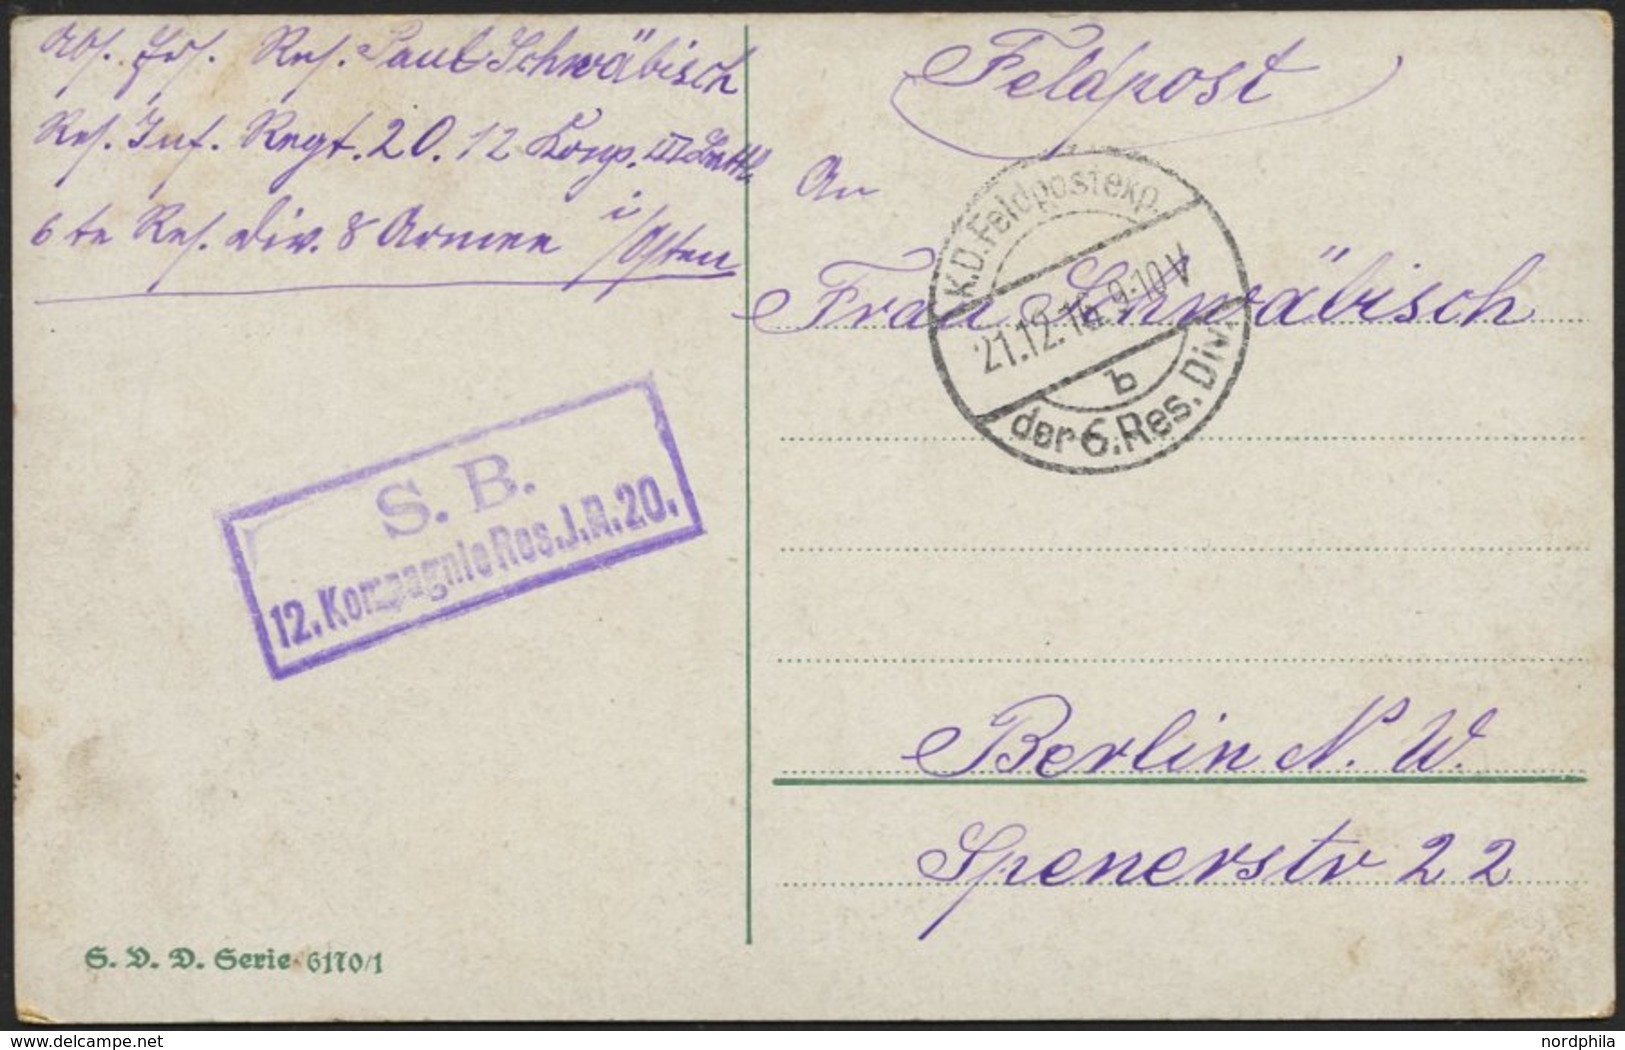 Abs. Ers. Res. Paul Schwäbisch
Res. Inf. Regt. 20. 12 Komp. III Batl.
6te Res. Div. 8 Armee i/Osten
Feldpost
An
Frau Schwäbisch
Berlin N. W.
Spenerstr 22
K.D. Feldpostexp.
21.12.16. 9-10 V
b
der 6. Res. Div.
S. B.
12. Kompagnie Res. J. R. 20.
S. V. D. Serie 6170/1
nordphila
delcampe.net